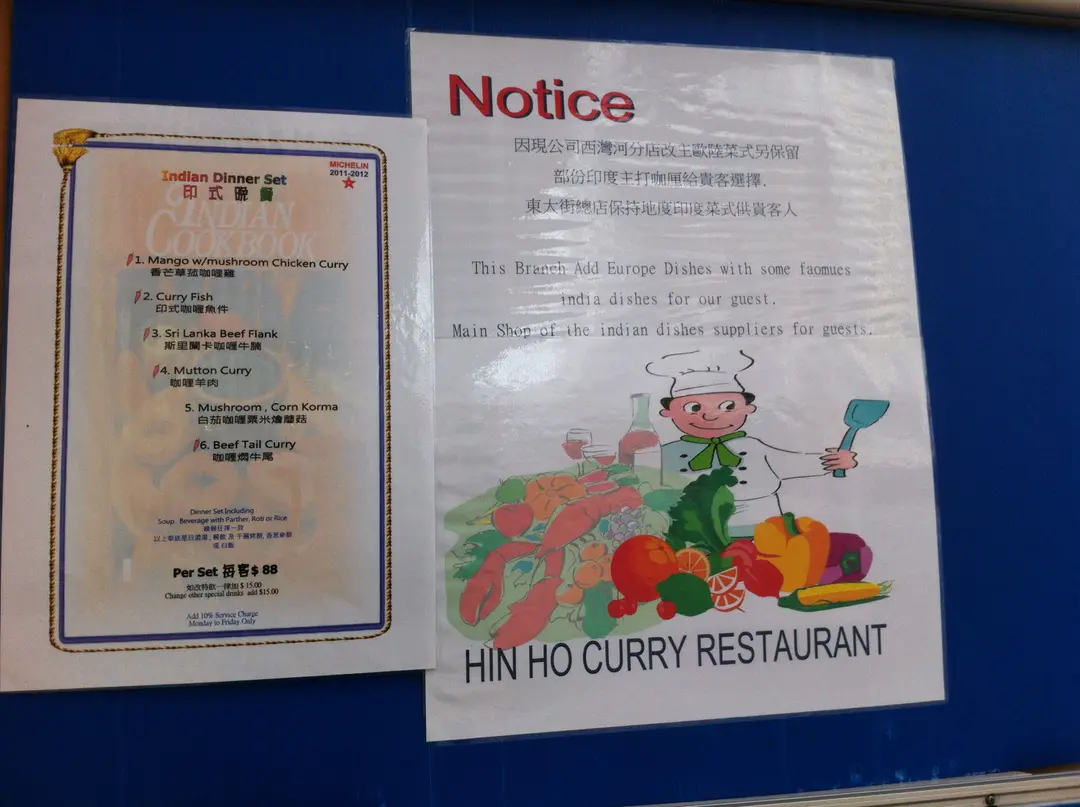 MICHELIN
2011-2012
Indian Dinner Set
印式晚餐
INDIAN
COOKBOOK
1. Mango w/mushroom Chicken Curry
香芒草菰咖喱雞
2. Curry Fish
印式咖喱魚件
3. Sri Lanka Beef Flank
斯里蘭卡咖喱牛腩
4. Mutton Curry
咖喱羊肉
5. Mushroom , Corn Korma
白茄咖喱粟米燴蘑菇
6. Beef Tail Curry
咖喱燜牛尾
Dinner Set Including
Soup . Beverage with Parther, Roti or Rice
或白飯
Per Set 每客 $ 88
如改特飲一律加 $ 15.00
Change other special drinks add $15.00
Add 10% Service Charge
Monday to Friday Only
Notice
因現公司西灣河分店改主歐陸菜式另保留
部份印度主打咖喱給貴客選擇.
東大街總店保持地度印度菜式供貴客人
This Branch Add Europe Dishes with some faomues
india dishes for our guest.
Main Shop of the indian dishes suppliers for guests.
HIN HO CURRY RESTAURANT